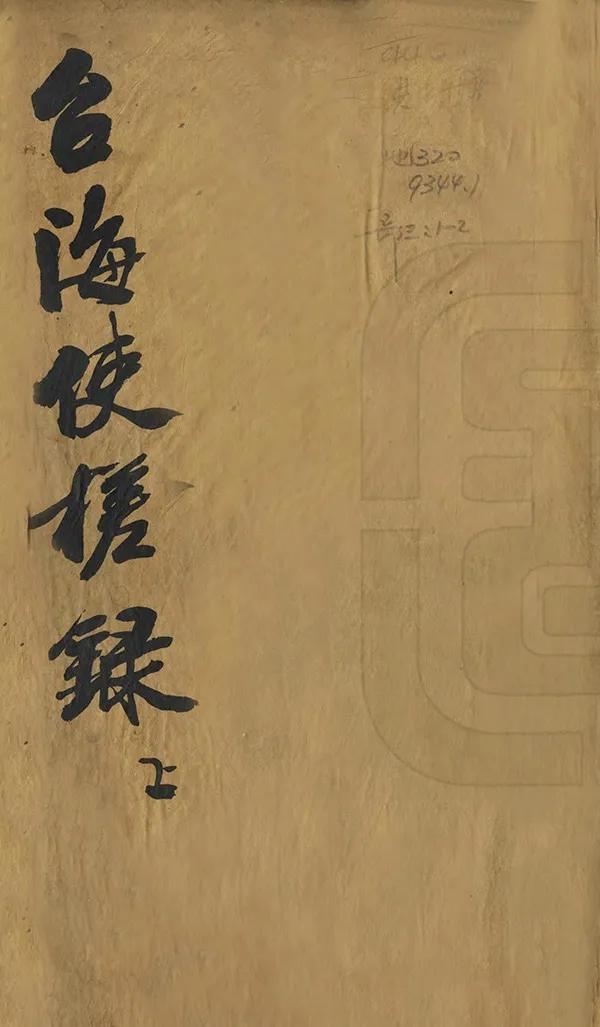 台海使槎録
上
地320
9344.1
:1-2